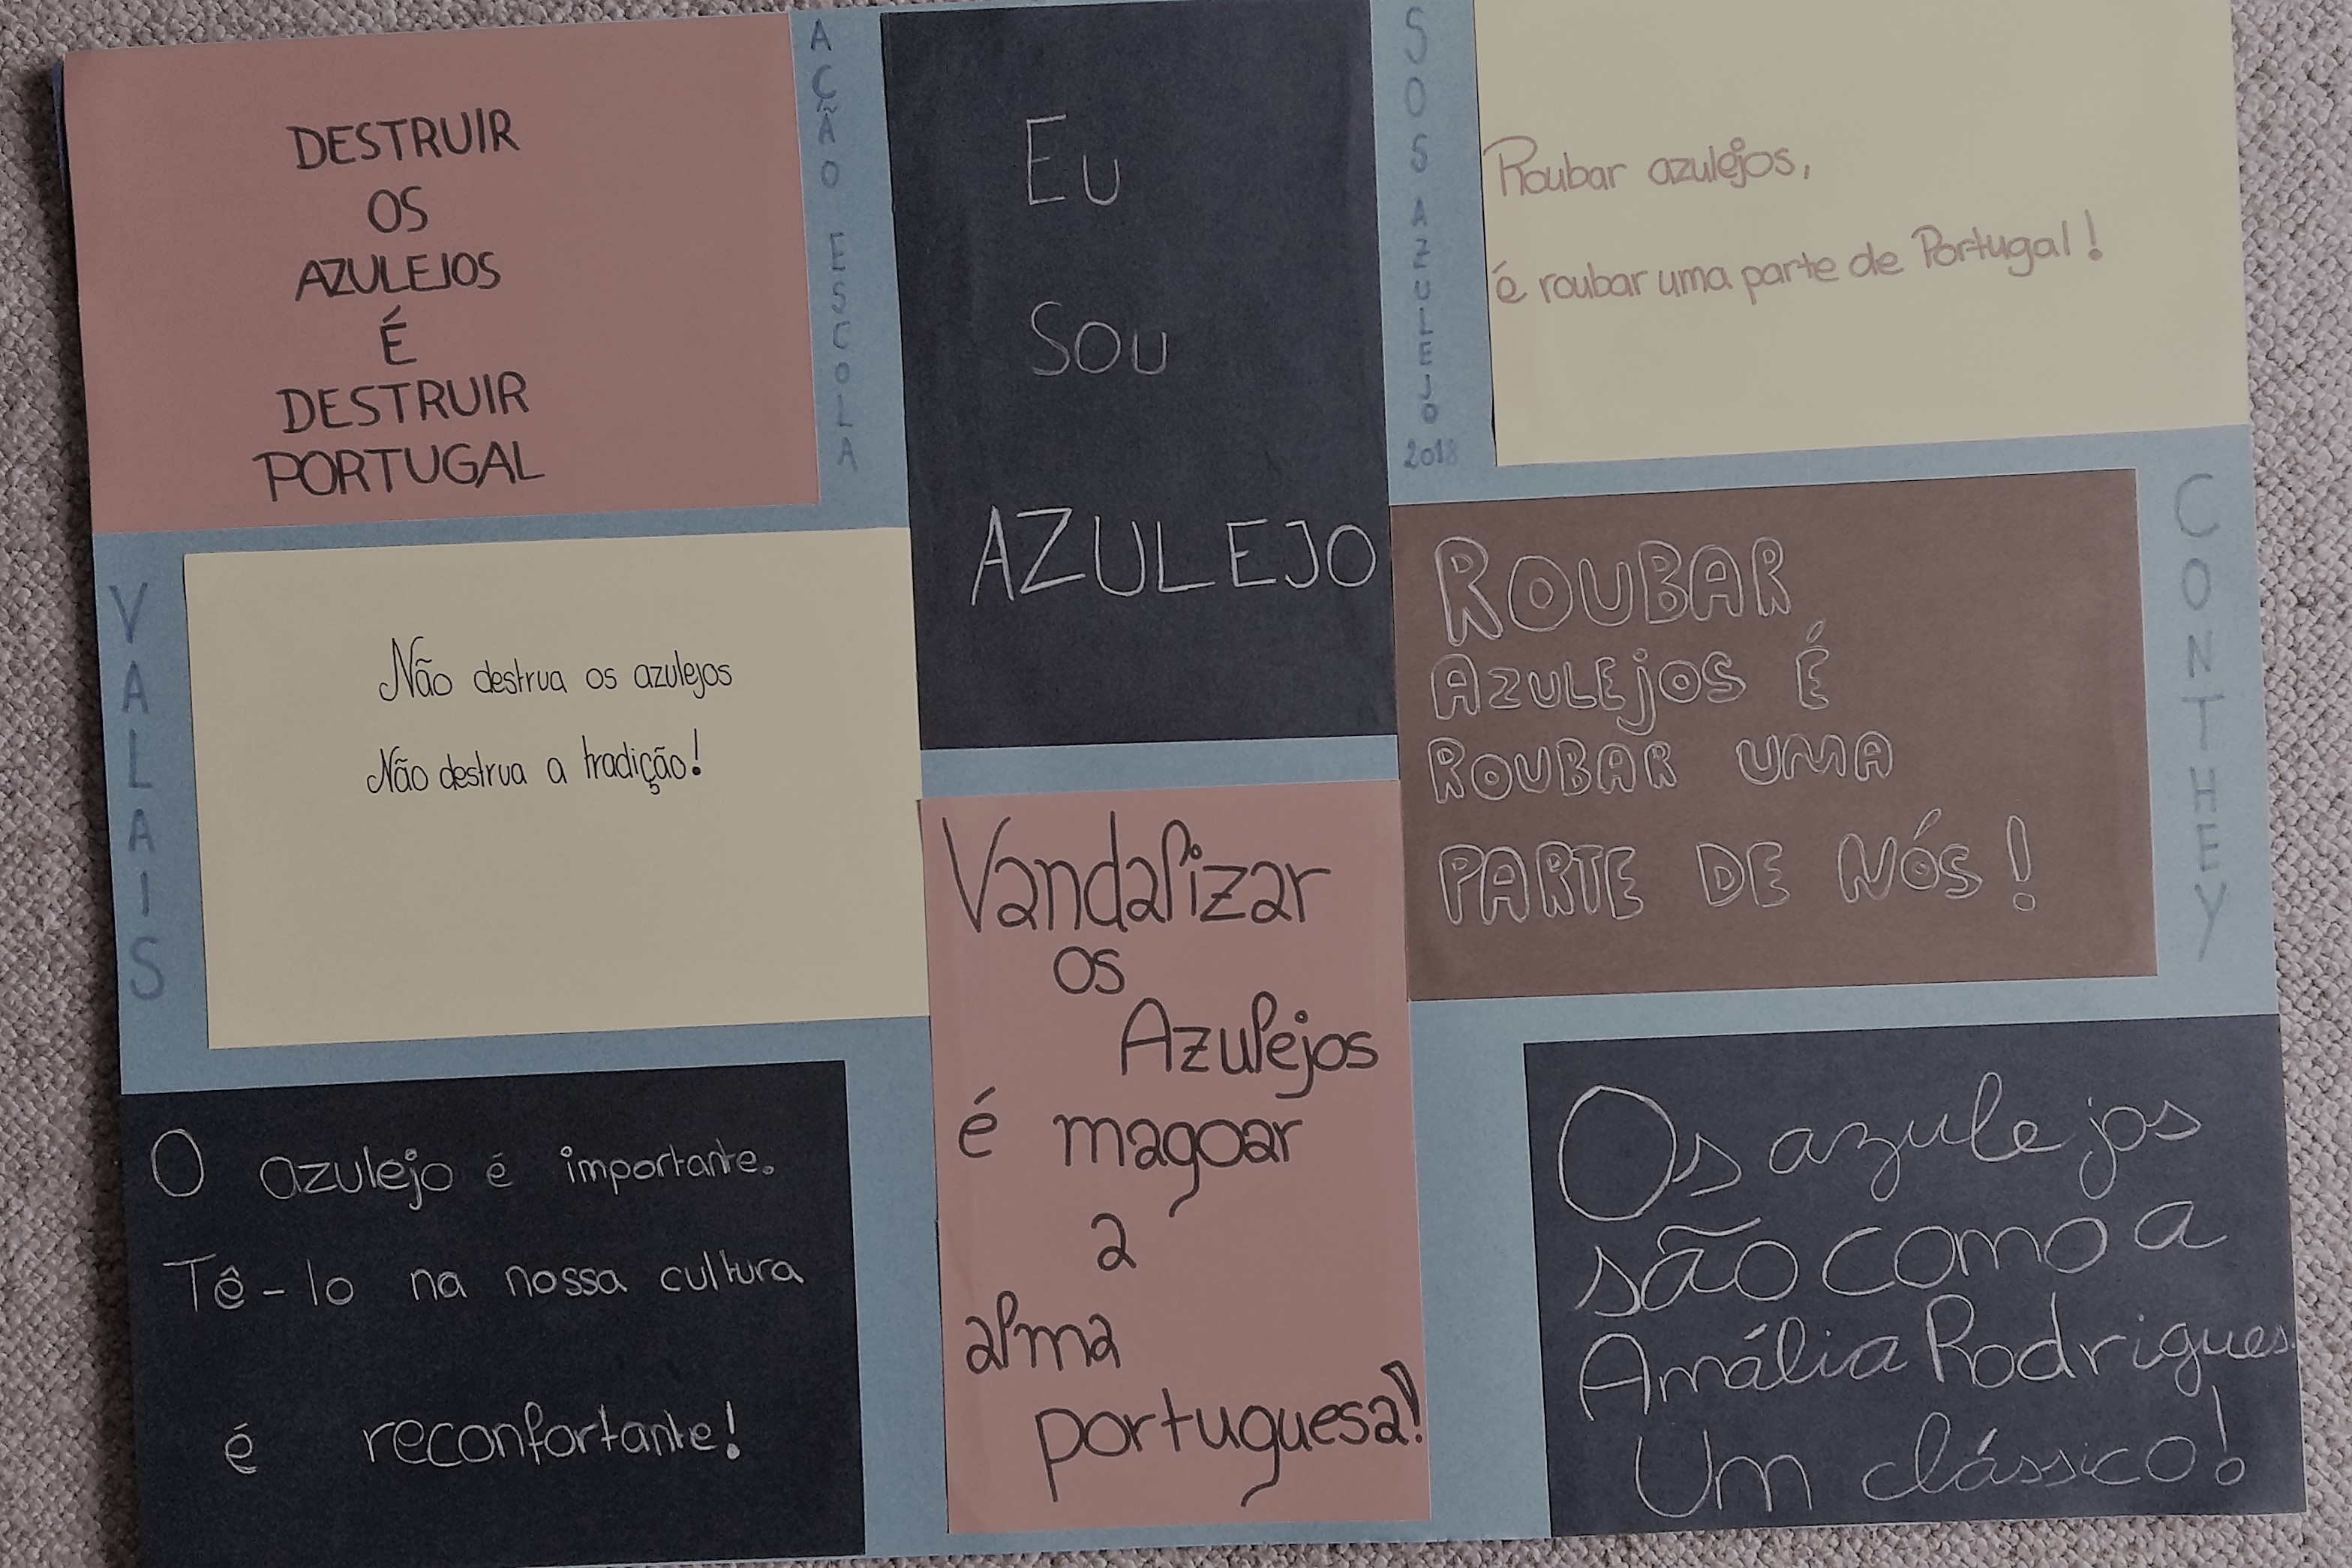 DESTRUIR
OS
AZULEJOS
É
DESTRUIR
PORTUGAL
AÇÃO ESCOLA
Eu
Sou
AZULEJO
SOS AZULEJO
2018
Roubar azulejos,
é roubar uma parte de Portugal!
VALAIS
Não destrua os azulejos
Não destrua a tradição!
ROUBAR
AZULEjOS É
ROUBAR UMA
PARTE DE NÓS!
CONTHEY
Vandalizar
os
Azulejos
é magoar
a
alma
portuguesa!
O azulejo é importante.
Tê-lo na nossa cultura
é reconfortante!
Os azulejos
são como a
Amália Rodrigues.
Um clássico!